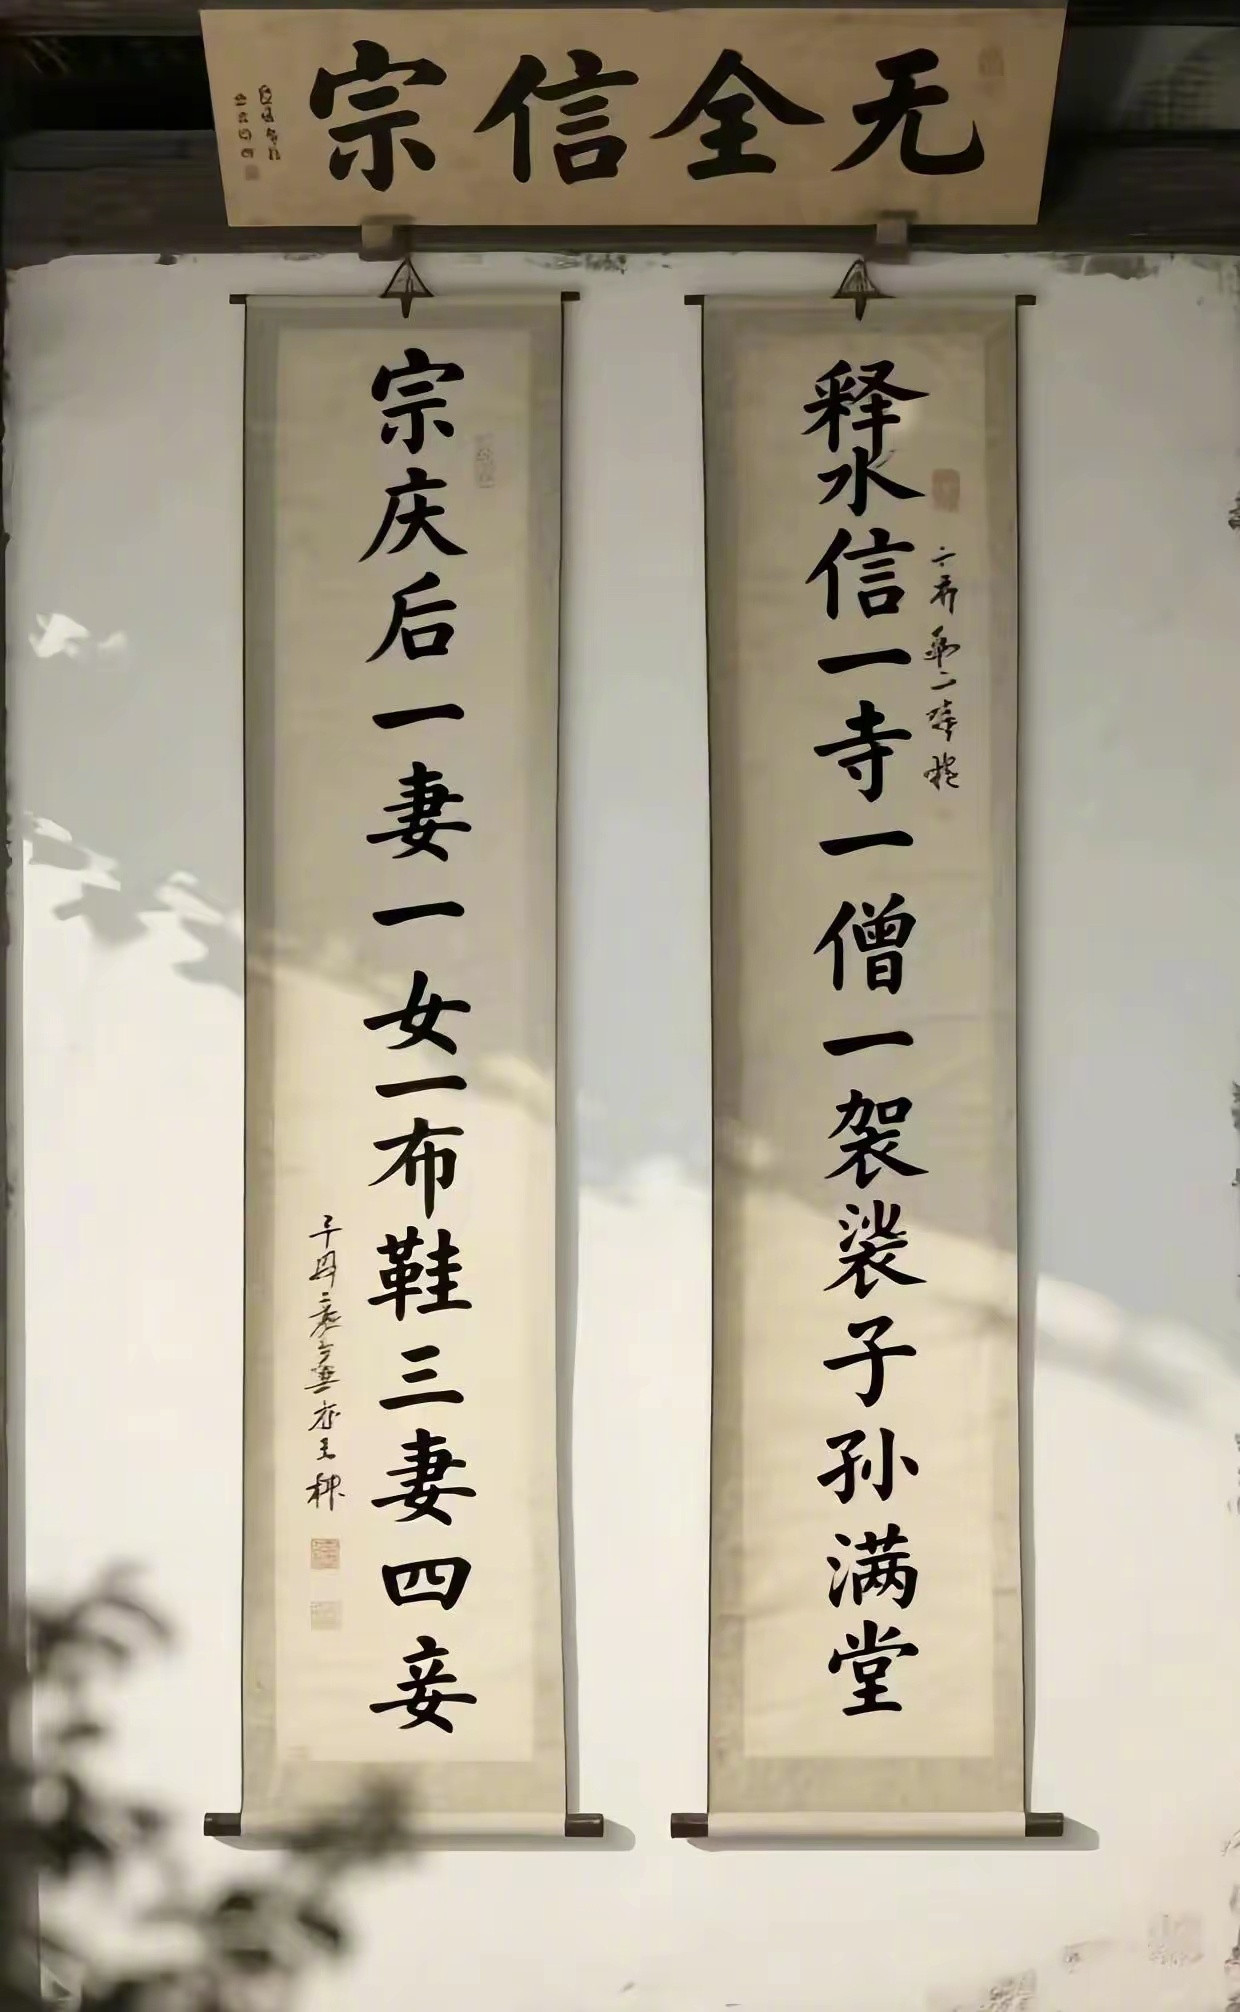 无全信宗
释永信一寺一僧一袈裟子孙满堂
宗庆后一妻一女一布鞋三妻四妾